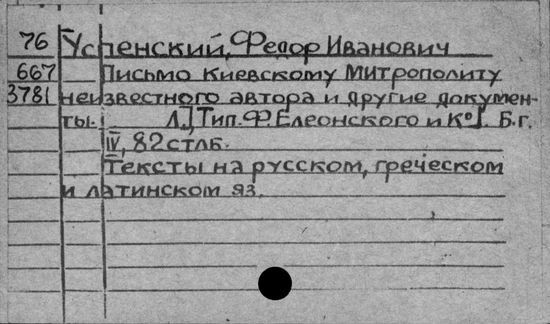 76 Успенский, Федор Иванович
667 Письмо Киевскому Митрополиту
3781 неизвестного автора и другие докумен-
ты. Л.], Тип. Ф. Елеонского и К°]. Б.г.
IV, 82 стлб.
Тексты на русском, греческом
и латинском яз.